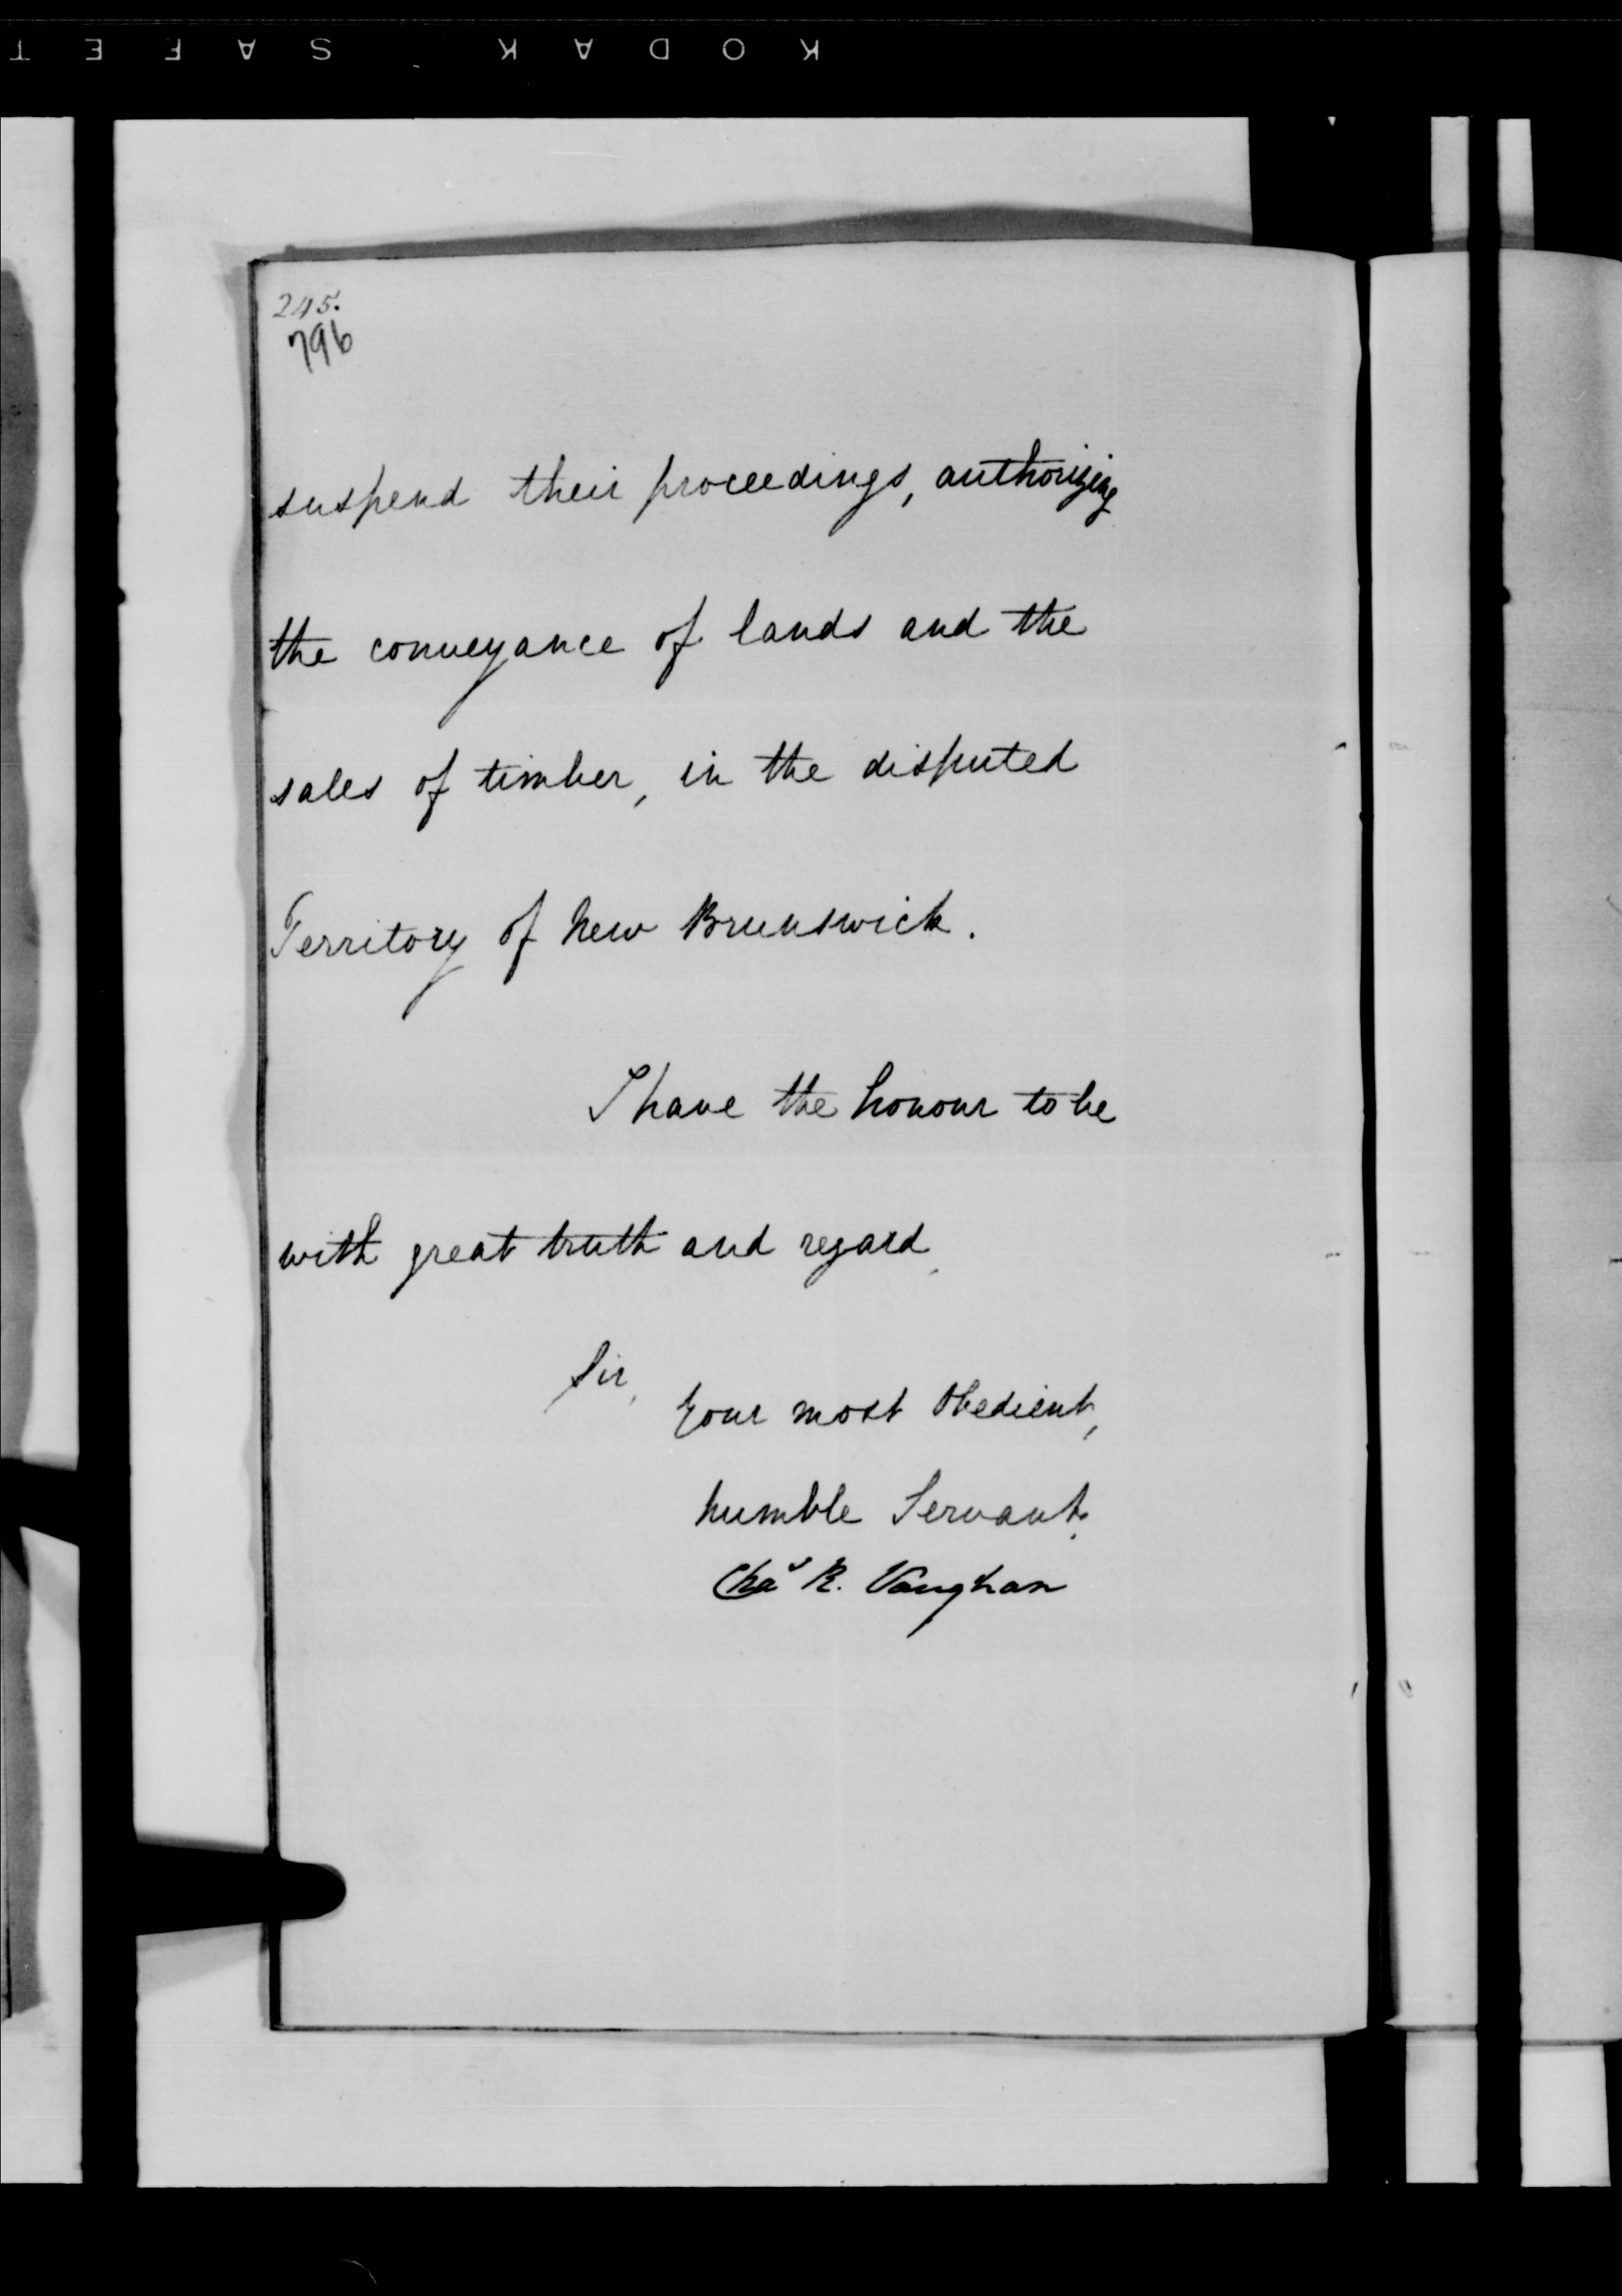 KODAK SAFET
245.
796
suspend their proceedings, authorizing
the conveyance of lands and the
sales of timber, in the disputed
Territory of New Brunswick.
I have the honour to be
with great truth and regard,
Sir,
Your most Obedient,
humble Servant.
Chas R. Vaughan